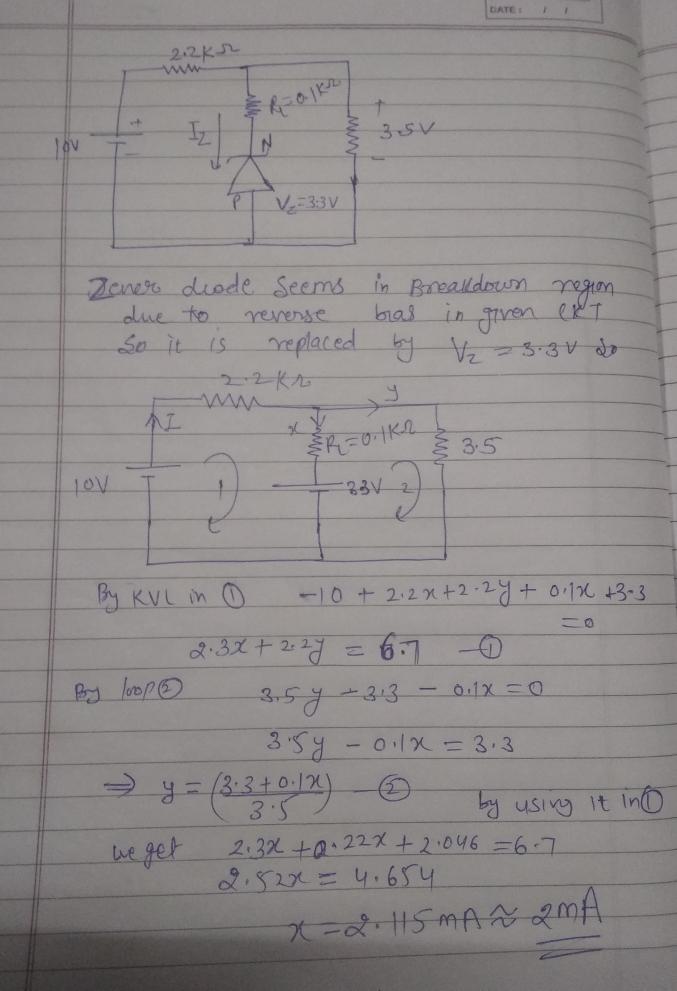 DATE: / /
2.2KΩ
10V
+
-
I_Z
R=0.1KΩ
N
P
V_Z=3.3V
+
3.5V
-
Zener diode Seems in Breakdown region
due to reverse bias in given CKT
So it is replaced by V_Z = 3.3V So
2.2KΩ
y
I
x
R=0.1KΩ
3.5
10V
1
3.3V
2
By KVL in ① -10 + 2.2x+2.2y + 0.1x +3.3
=0
2.3x + 2.2y = 6.7 -①
By loop② 3.5y - 3.3 - 0.1x = 0
3.5y - 0.1x = 3.3
⇒ y = (3.3+0.1x / 3.5) -②
by using it in①
we get 2.3x + 0.22x + 2.046 = 6.7
2.52x = 4.654
x = 2.115mA ≈ 2mA